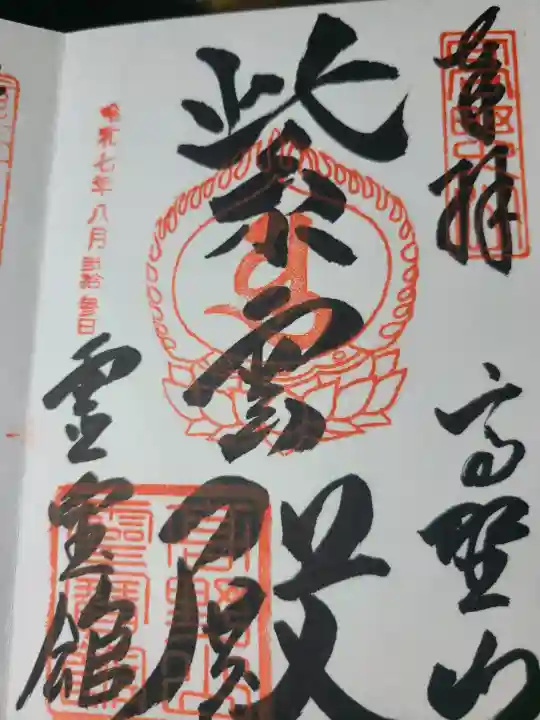 奉拝
高野山
紫雲殿
令和七年八月弐拾参日
霊宝館